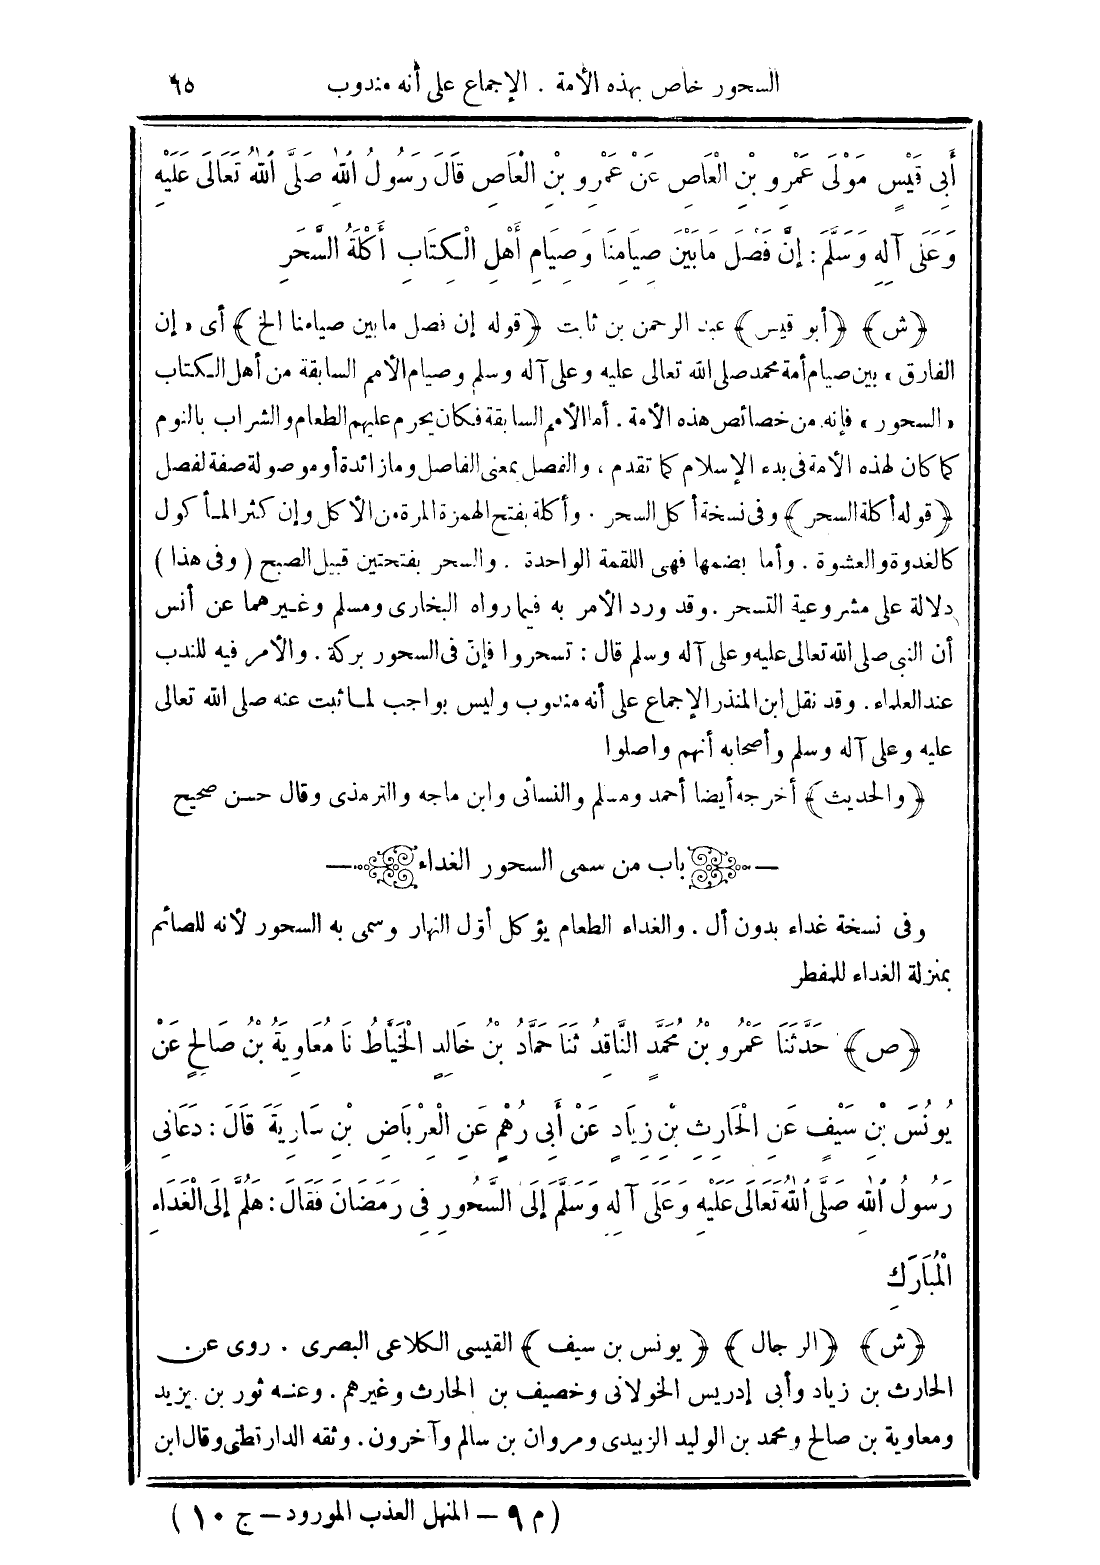 السحور خاص بهذه الأمة . الإجماع على أنه مندوب ٦٥
أَبِى قَيْسٍ مَوْلَى عَمْرِو بْنِ الْعَاصِ عَنْ عَمْرِو بْنِ الْعَاصِ قَالَ رَسُولُ اللهِ صَلَّى اللهُ تَعَالَى عَلَيْهِ
وَعَلَى آلِهِ وَسَلَّمَ : إِنَّ فَصْلَ مَابَيْنَ صِيَامِنَا وَصِيَامِ أَهْلِ الْكِتَابِ أَكْلَةُ السَّحَرِ
﴿ش﴾ ﴿أبو قيس﴾ عبد الرحمن بن ثابت ﴿قوله إن فصل مابين صيامنا الخ﴾ أى «إن
الفارق» بين صيام أمة محمد صلى الله تعالى عليه وعلى آله وسلم وصيام الأمم السابقة من أهل الكتاب
«السحور» فإنه من خصائص هذه الأمة . أما الأمم السابقة فكان يحرم عليهم الطعام والشراب بالنوم
كما كان لهذه الأمة فى بدء الإسلام كما تقدم ، والفصل بمعنى الفاصل وما زائدة أو موصولة صفة لفصل
﴿قوله أكلة السحر﴾ وفى نسخة أكل السحر . وأكلة بفتح الهمزة المرة من الأكل وإن كثر المأكول
كالغدوة والعشوة . وأما بضمها فهى اللقمة الواحدة . والسحر بفتحتين قبيل الصبح (وفى هذا)
دلالة على مشروعية التسحر . وقد ورد الأمر به فيما رواه البخارى ومسلم وغيرهما عن أنس
أن النبى صلى الله تعالى عليه وعلى آله وسلم قال : تسحروا فإنّ فى السحور بركة . والأمر فيه للندب
عند العلماء . وقد نقل ابن المنذر الإجماع على أنه مندوب وليس بواجب لما ثبت عنه صلى الله تعالى
عليه وعلى آله وسلم وأصحابه أنهم واصلوا
﴿والحديث﴾ أخرجه أيضا أحمد ومسلم والنسائى وابن ماجه والترمذى وقال حسن صحيح
— باب من سمى السحور الغداء —
وفى نسخة غداء بدون أل . والغداء الطعام يؤكل أوّل النهار وسمى به السحور لأنه للصائم
بمنزلة الغداء للمفطر
﴿ص﴾ حَدَّثَنَا عَمْرُو بْنُ مُحَمَّدٍ النَّاقِدُ ثَنَا حَمَّادُ بْنُ خَالِدٍ الْخَيَّاطُ نَا مُعَاوِيَةُ بْنُ صَالِحٍ عَنْ
يُونُسَ بْنِ سَيْفٍ عَنِ الْحَارِثِ بْنِ زِيَادٍ عَنْ أَبِى رُهْمٍ عَنِ الْعِرْبَاضِ بْنِ سَارِيَةَ قَالَ : دَعَانِى
رَسُولُ اللهِ صَلَّى اللهُ تَعَالَى عَلَيْهِ وَعَلَى آلِهِ وَسَلَّمَ إِلَى السَّحُورِ فِى رَمَضَانَ فَقَالَ : هَلُمَّ إِلَى الْغَدَاءِ
الْمُبَارَكِ
﴿ش﴾ ﴿الرجال﴾ ﴿يونس بن سيف﴾ القيسى الكلاعى البصرى . روى عن
الحارث بن زياد وأبى إدريس الخولانى وخصيف بن الحارث وغيرهم . وعنه ثور بن يزيد
ومعاوية بن صالح ومحمد بن الوليد الزبيدى ومروان بن سالم وآخرون . وثقه الدارقطنى وقال ابن
(م ٩ – المنهل العذب المورود – ج ١٠)